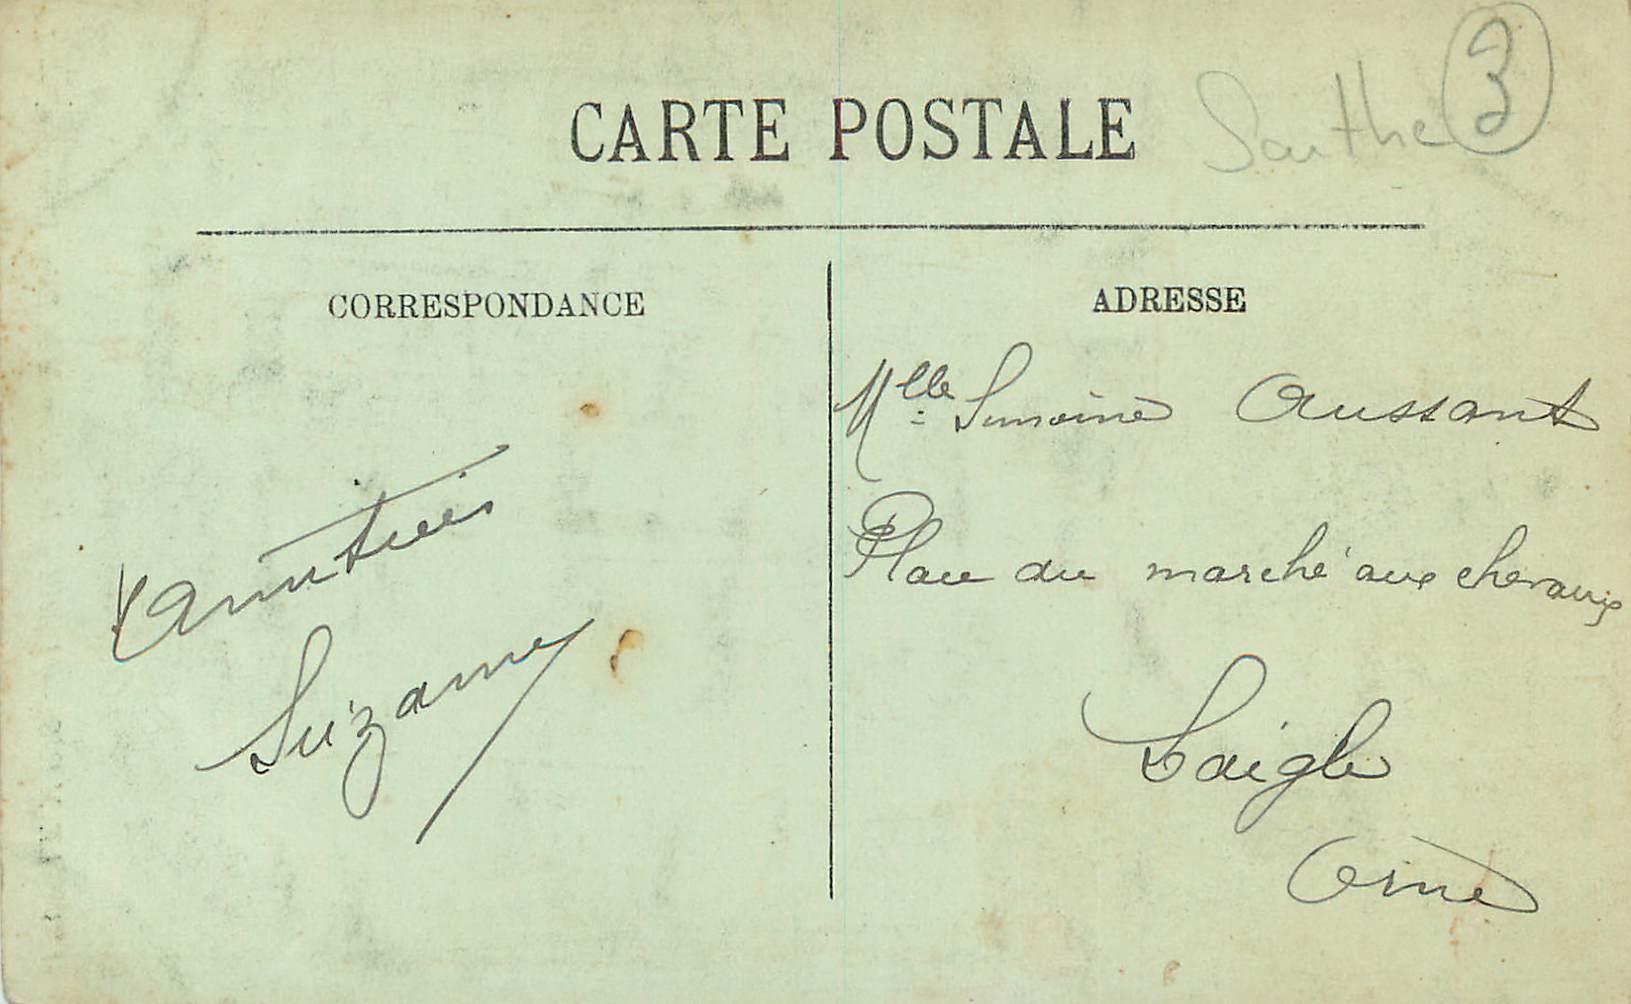 CARTE POSTALE
Sarthe 3
CORRESPONDANCE
Amitiés
Suzanne
ADRESSE
Mlle Simone Aussant
Place du marché aux chevaux
Laigle
Orne